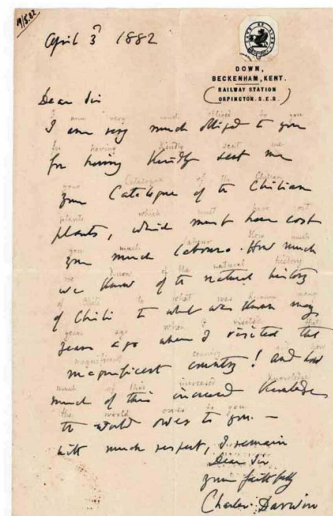 April 3d 1882
DOWN,
BECKENHAM, KENT.
(RAILWAY STATION
ORPINGTON. S.E.R.)
Dear Sir
I am very much obliged to you
for having kindly sent me
your Catalogue of the Chilian
plants, which must have cost
you much labour. How much
we know of the natural history
of Chili to what was known many
years ago when I visited that
magnificent country! and how
much of this increased knowledge
the world owes to you.—
With much respect, I remain
Dear Sir
yours faithfully
Charles Darwin